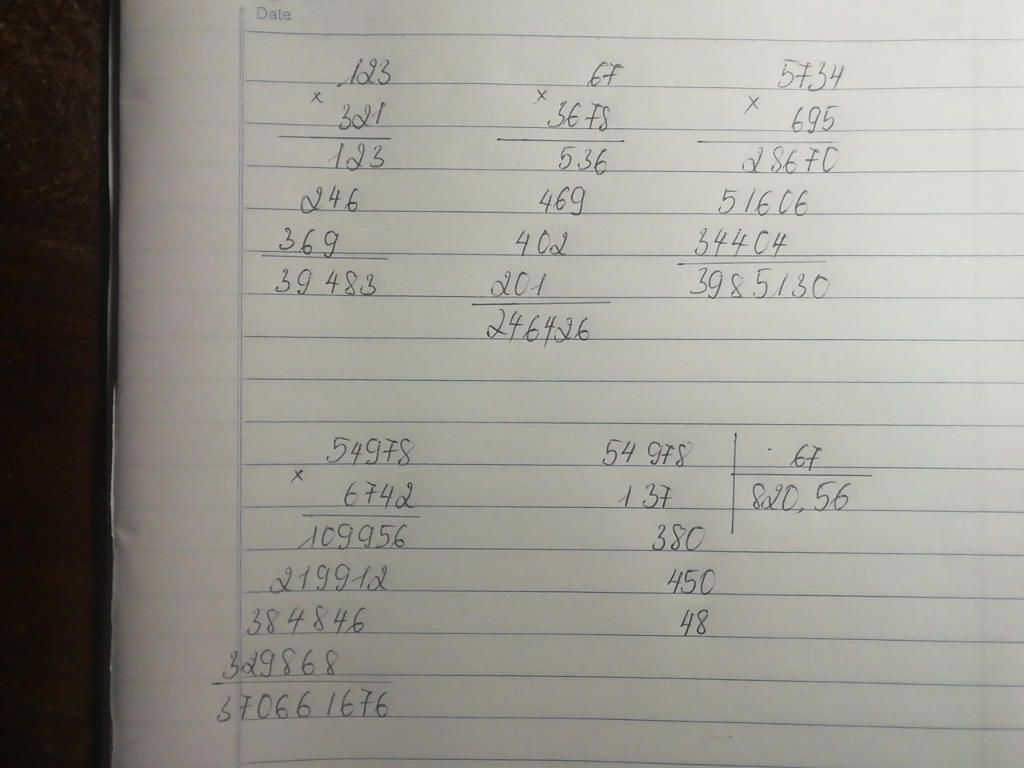 Date
123 67 5734
× × ×
321 3678 695
123 536 28670
246 469 51606
369 402 34404
39483 201 3985130
246426
54978 54978 67
×
6742 137 820,56
109956 380
219912 450
384846 48
329868
370661676